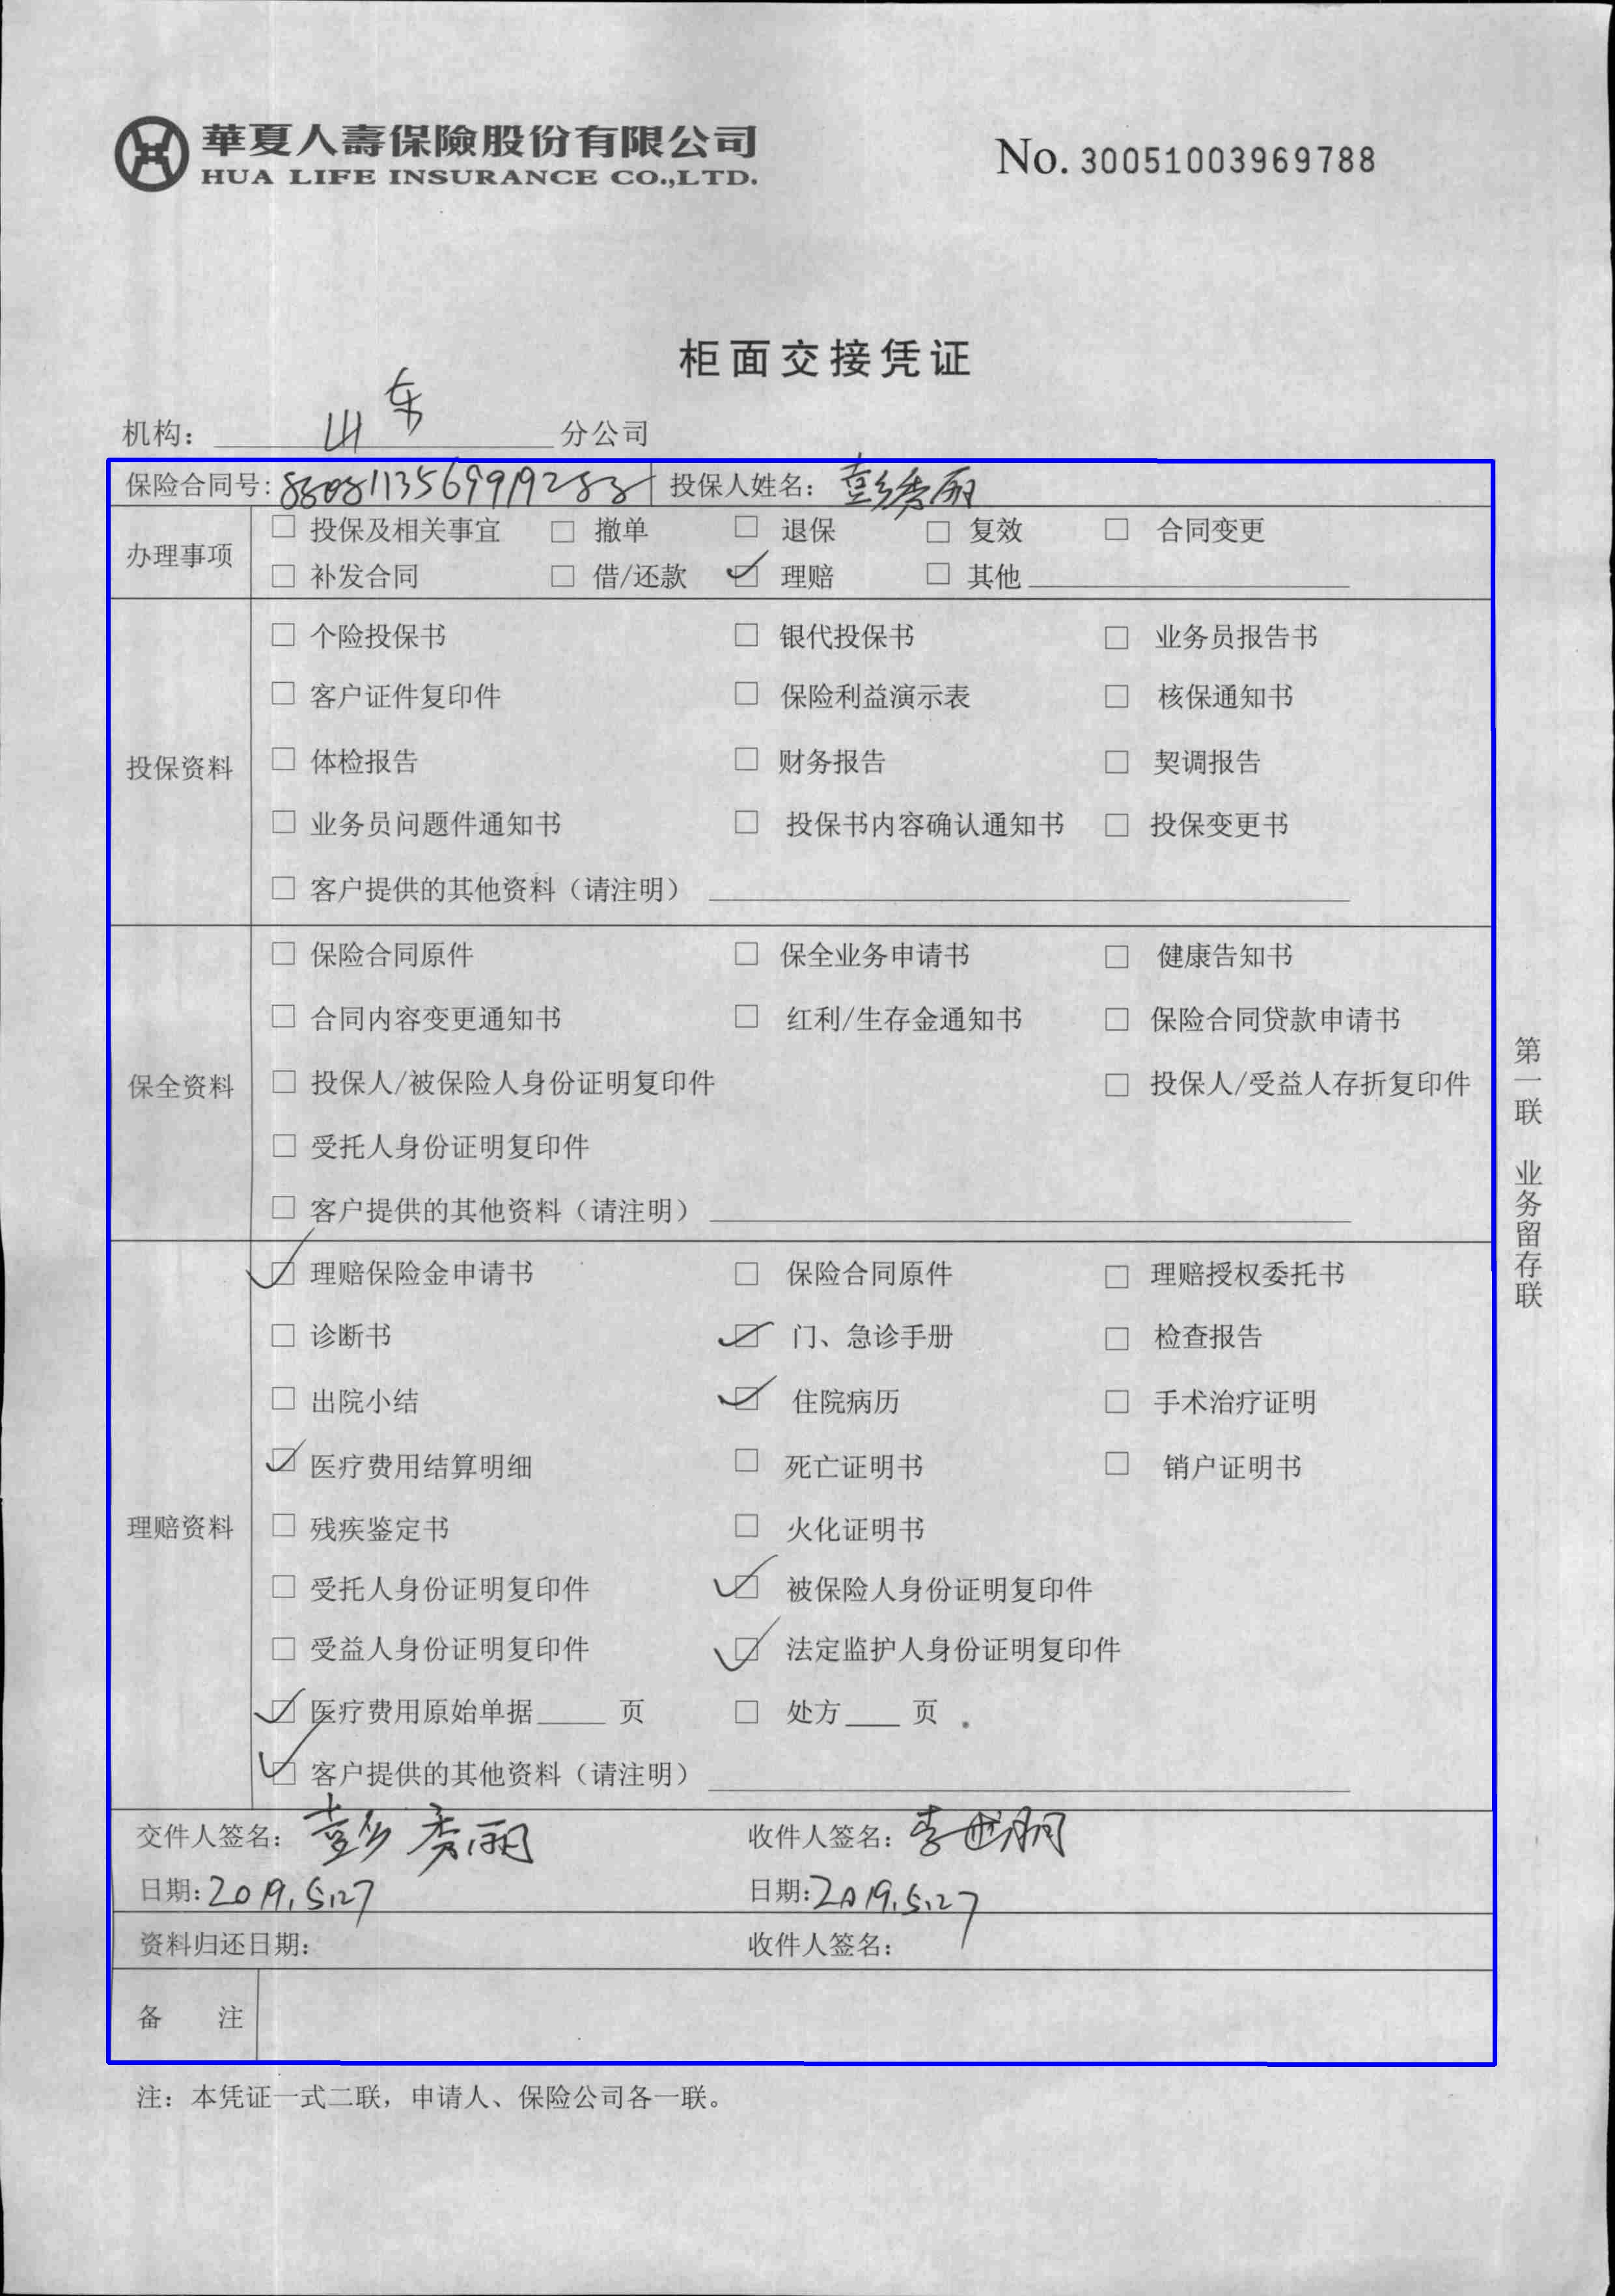 華夏人壽保險股份有限公司
HUA LIFE INSURANCE CO.,LTD.
No. 30051003969788
柜面交接凭证
机构: 山东 分公司
保险合同号: 投保人姓名: 彭秀丽
办理事项
□ 投保及相关事宜 □ 撤单 □ 退保 □ 复效 □ 合同变更
□ 补发合同 □ 借/还款 ☑ 理赔 □ 其他
投保资料
□ 个险投保书 □ 银代投保书 □ 业务员报告书
□ 客户证件复印件 □ 保险利益演示表 □ 核保通知书
□ 体检报告 □ 财务报告 □ 契调报告
□ 业务员问题件通知书 □ 投保书内容确认通知书 □ 投保变更书
□ 客户提供的其他资料（请注明）
保全资料
□ 保险合同原件 □ 保全业务申请书 □ 健康告知书
□ 合同内容变更通知书 □ 红利/生存金通知书 □ 保险合同贷款申请书
□ 投保人/被保险人身份证明复印件 □ 投保人/受益人存折复印件
□ 受托人身份证明复印件
□ 客户提供的其他资料（请注明）
理赔资料
☑ 理赔保险金申请书 □ 保险合同原件 □ 理赔授权委托书
□ 诊断书 ☑ 门、急诊手册 □ 检查报告
□ 出院小结 ☑ 住院病历 □ 手术治疗证明
☑ 医疗费用结算明细 □ 死亡证明书 □ 销户证明书
□ 残疾鉴定书 □ 火化证明书
□ 受托人身份证明复印件 ☑ 被保险人身份证明复印件
□ 受益人身份证明复印件 ☑ 法定监护人身份证明复印件
☑ 医疗费用原始单据____页 □ 处方____页
☑ 客户提供的其他资料（请注明）
交件人签名: 彭秀丽 收件人签名: 李
日期: 2019.5.27 日期: 2019.5.27
资料归还日期: 收件人签名:
备 注
注: 本凭证一式二联, 申请人、保险公司各一联。
第一联 业务留存联